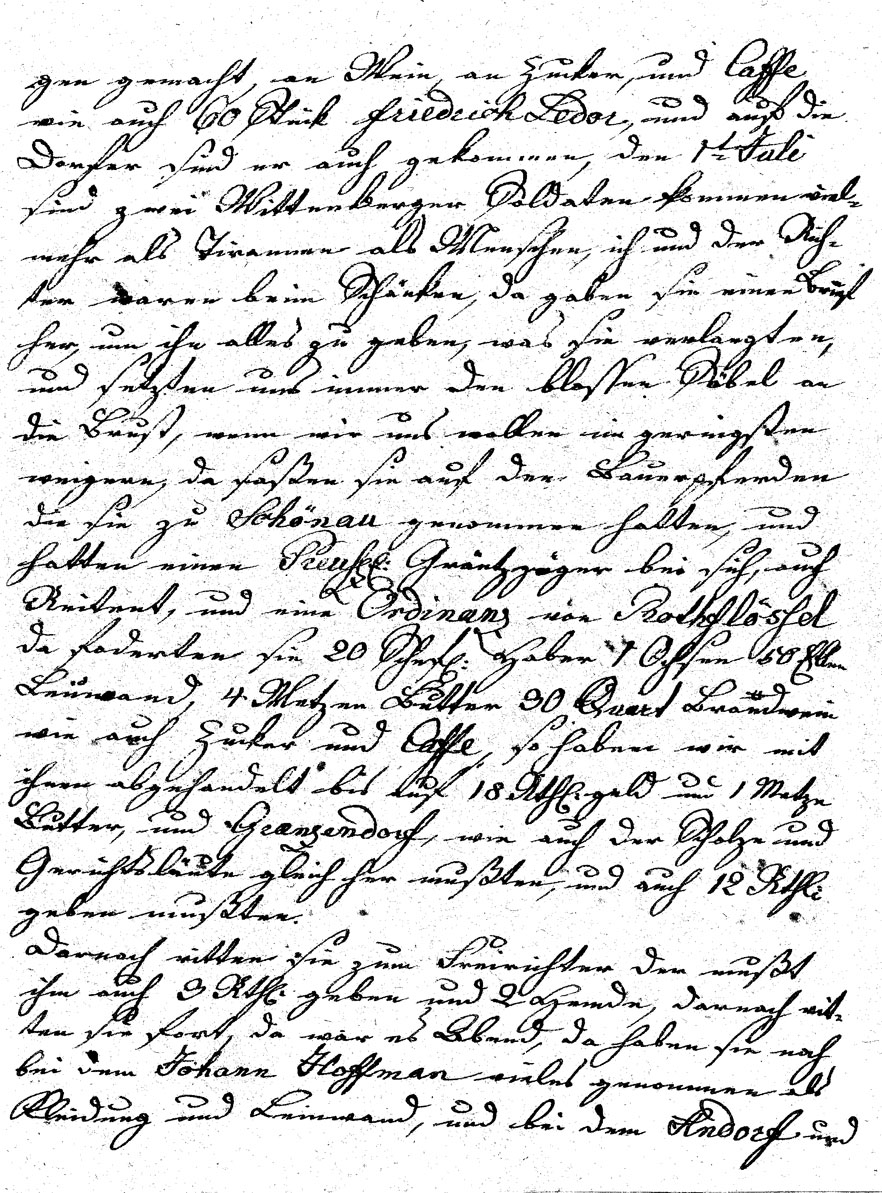 gen gemacht, an Wein, an Zucker, und Caffe,
wie auch 60 Stück Friedrich Ledor, und auf die
Dorfer sind er auch gekommen, den 1t Juli
sind zwei Wittenberger Soldaten kommen viel-
mehr als Tirannen als Menschen, ich und der Rich-
ter waren beim Schänken, da gaben sie einen Brief
her, um ihn alles zu geben, was sie verlangten,
und setzten uns immer den blossen Säbel an
die Brust, wenn wir uns wollen im geringsten
weigern, da saßen sie auf den Bauerpferden
die sie zu Schönau genommen hatten, und
hatten einen Preuß: Gräntzjäger bei sich, auch
Reitent, und eine Ordinanz von Rothflössel
da foderten sie 20 Schefl: Haber 1 Ochsen 50 Ellen
Leinwand, 4 Metzen Butter 30 Quart Brandwein
wie auch Zucker und Caffe, so haben wir mit
ihnen abgehandelt bis auf 18 Rthl: geld und 1 Metze
Butter, und Granzendorf, wie auch der Scholze und
Gerichtsläute gleich her mußten, und auch 12 Rthl:
geben mußten.
Darnach ritten sie zum Freirichter der mußt
ihn auch 3 Rthl: geben und 2 Hemde, darnach rit-
ten sie fort, da war es Abend, da haben sie noch
bei dem Johann Hoffman vieles genommen als
Kleidung und Leinwand, und bei dem Andorf und